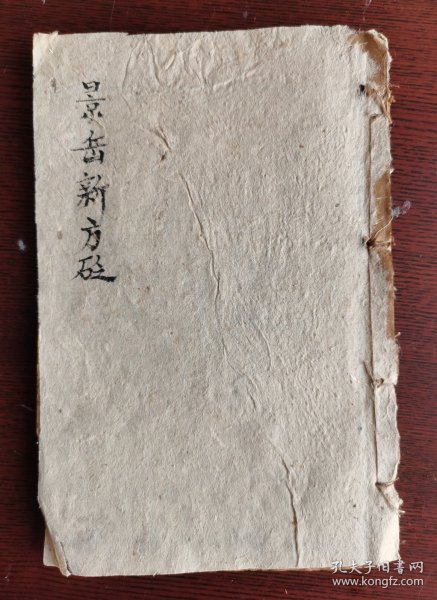 景岳新方砭
孔夫子旧书网
www.kongfz.com